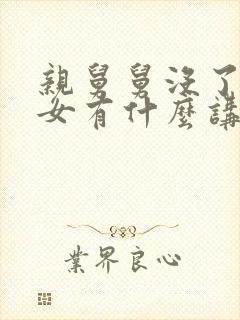 親舅舅沒了
女有什麼講
業界良心